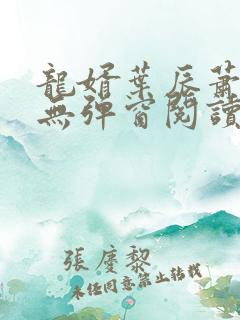 龍婿葉辰蕭
無彈窗閱讀
張慶黎
未经同意禁止转载